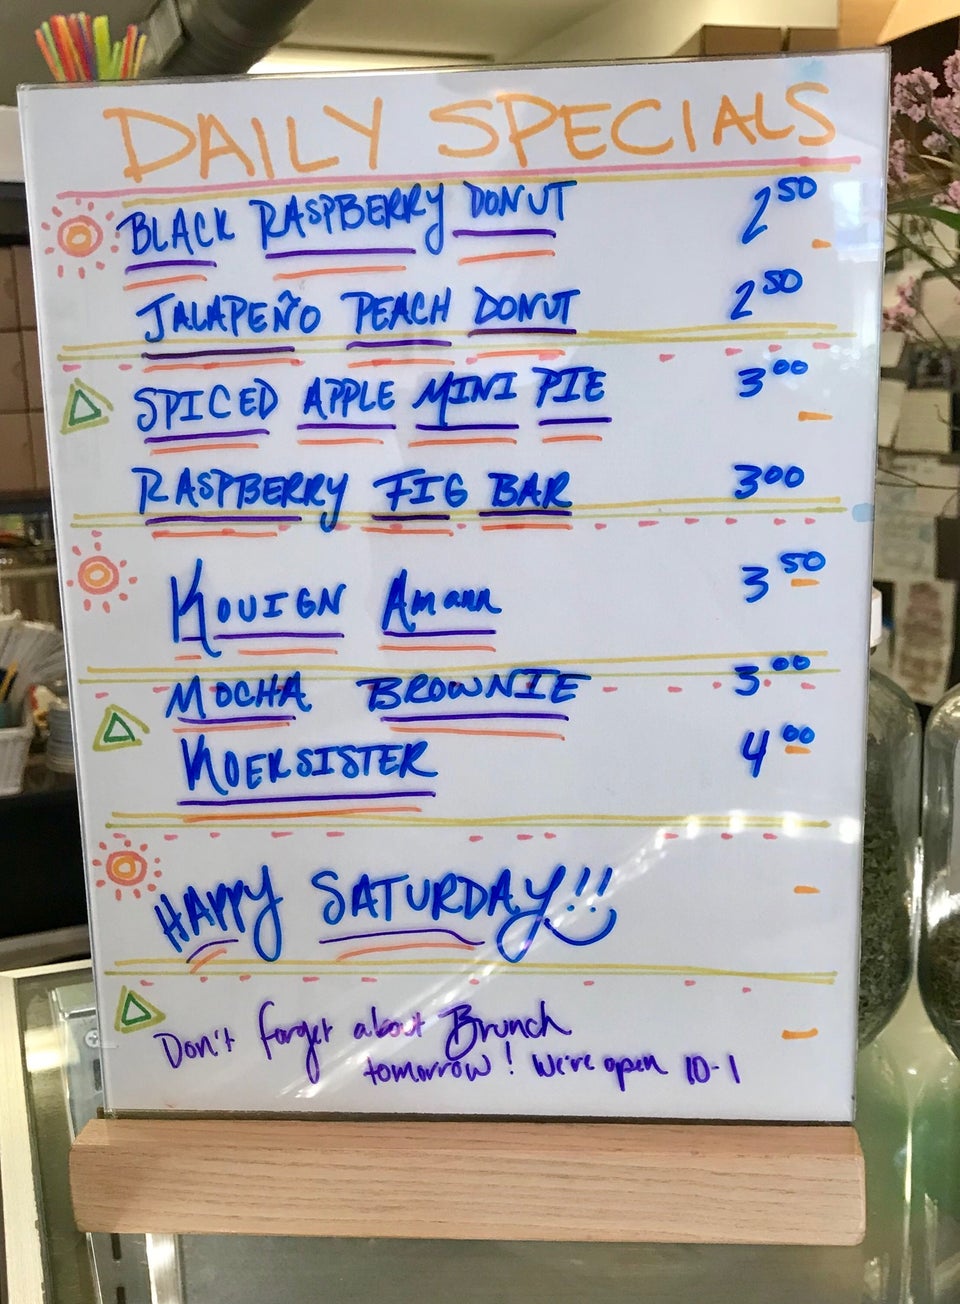 DAILY SPECIALS
BLACK RASPBERRY DONUT 2 50
JALAPEÑO PEACH DONUT 2 50
SPICED APPLE MINI PIE 3 00
RASPBERRY FIG BAR 3 00
KOUIGN Amann 3 50
MOCHA BROWNIE 3 00
KOEKSISTER 4 00
HAPPY SATURDAY!!
Don't forget about Brunch
tomorrow! We're open 10-1